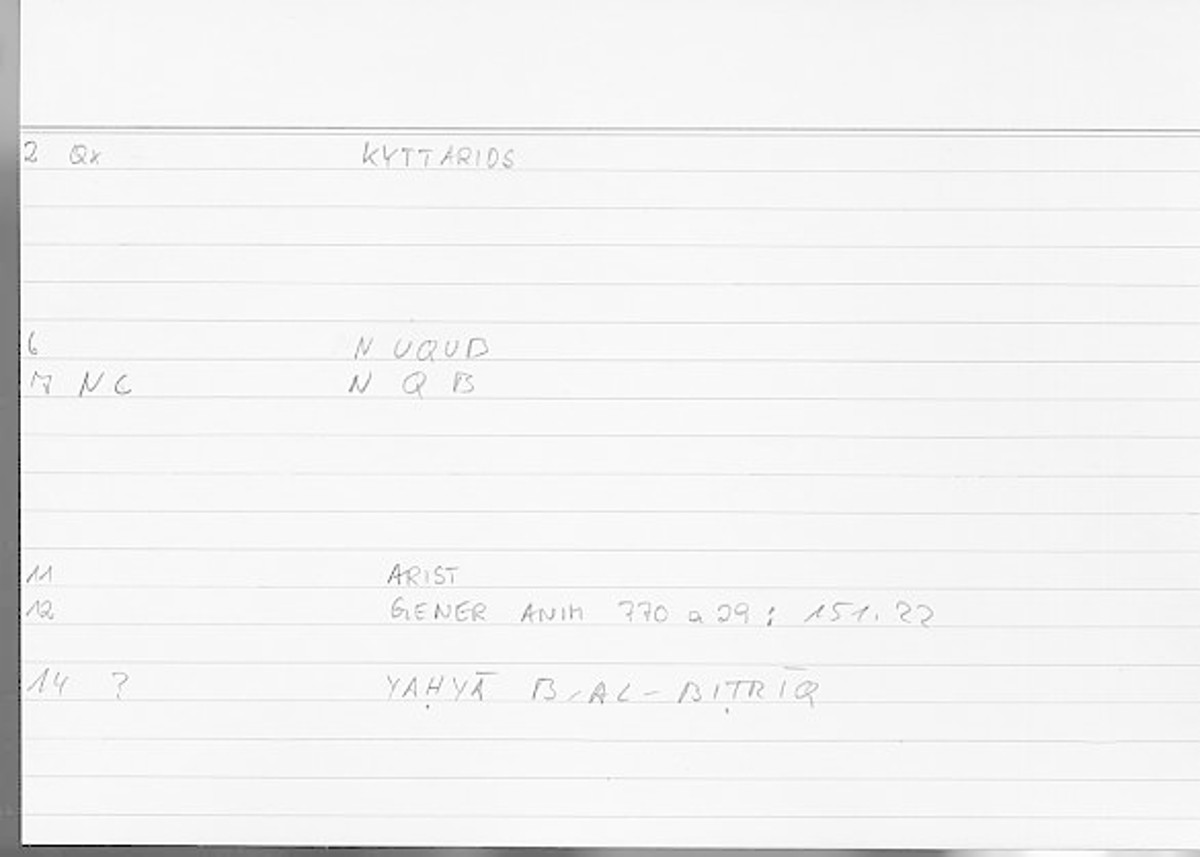 2 Qx KYTTARIOS
6 NUQUB
7 NC N Q B
11 ARIST
12 GENER ANIM 770 a 29 : 151.22
14 ? YAḤYĀ B. AL-BIṬRĪQ